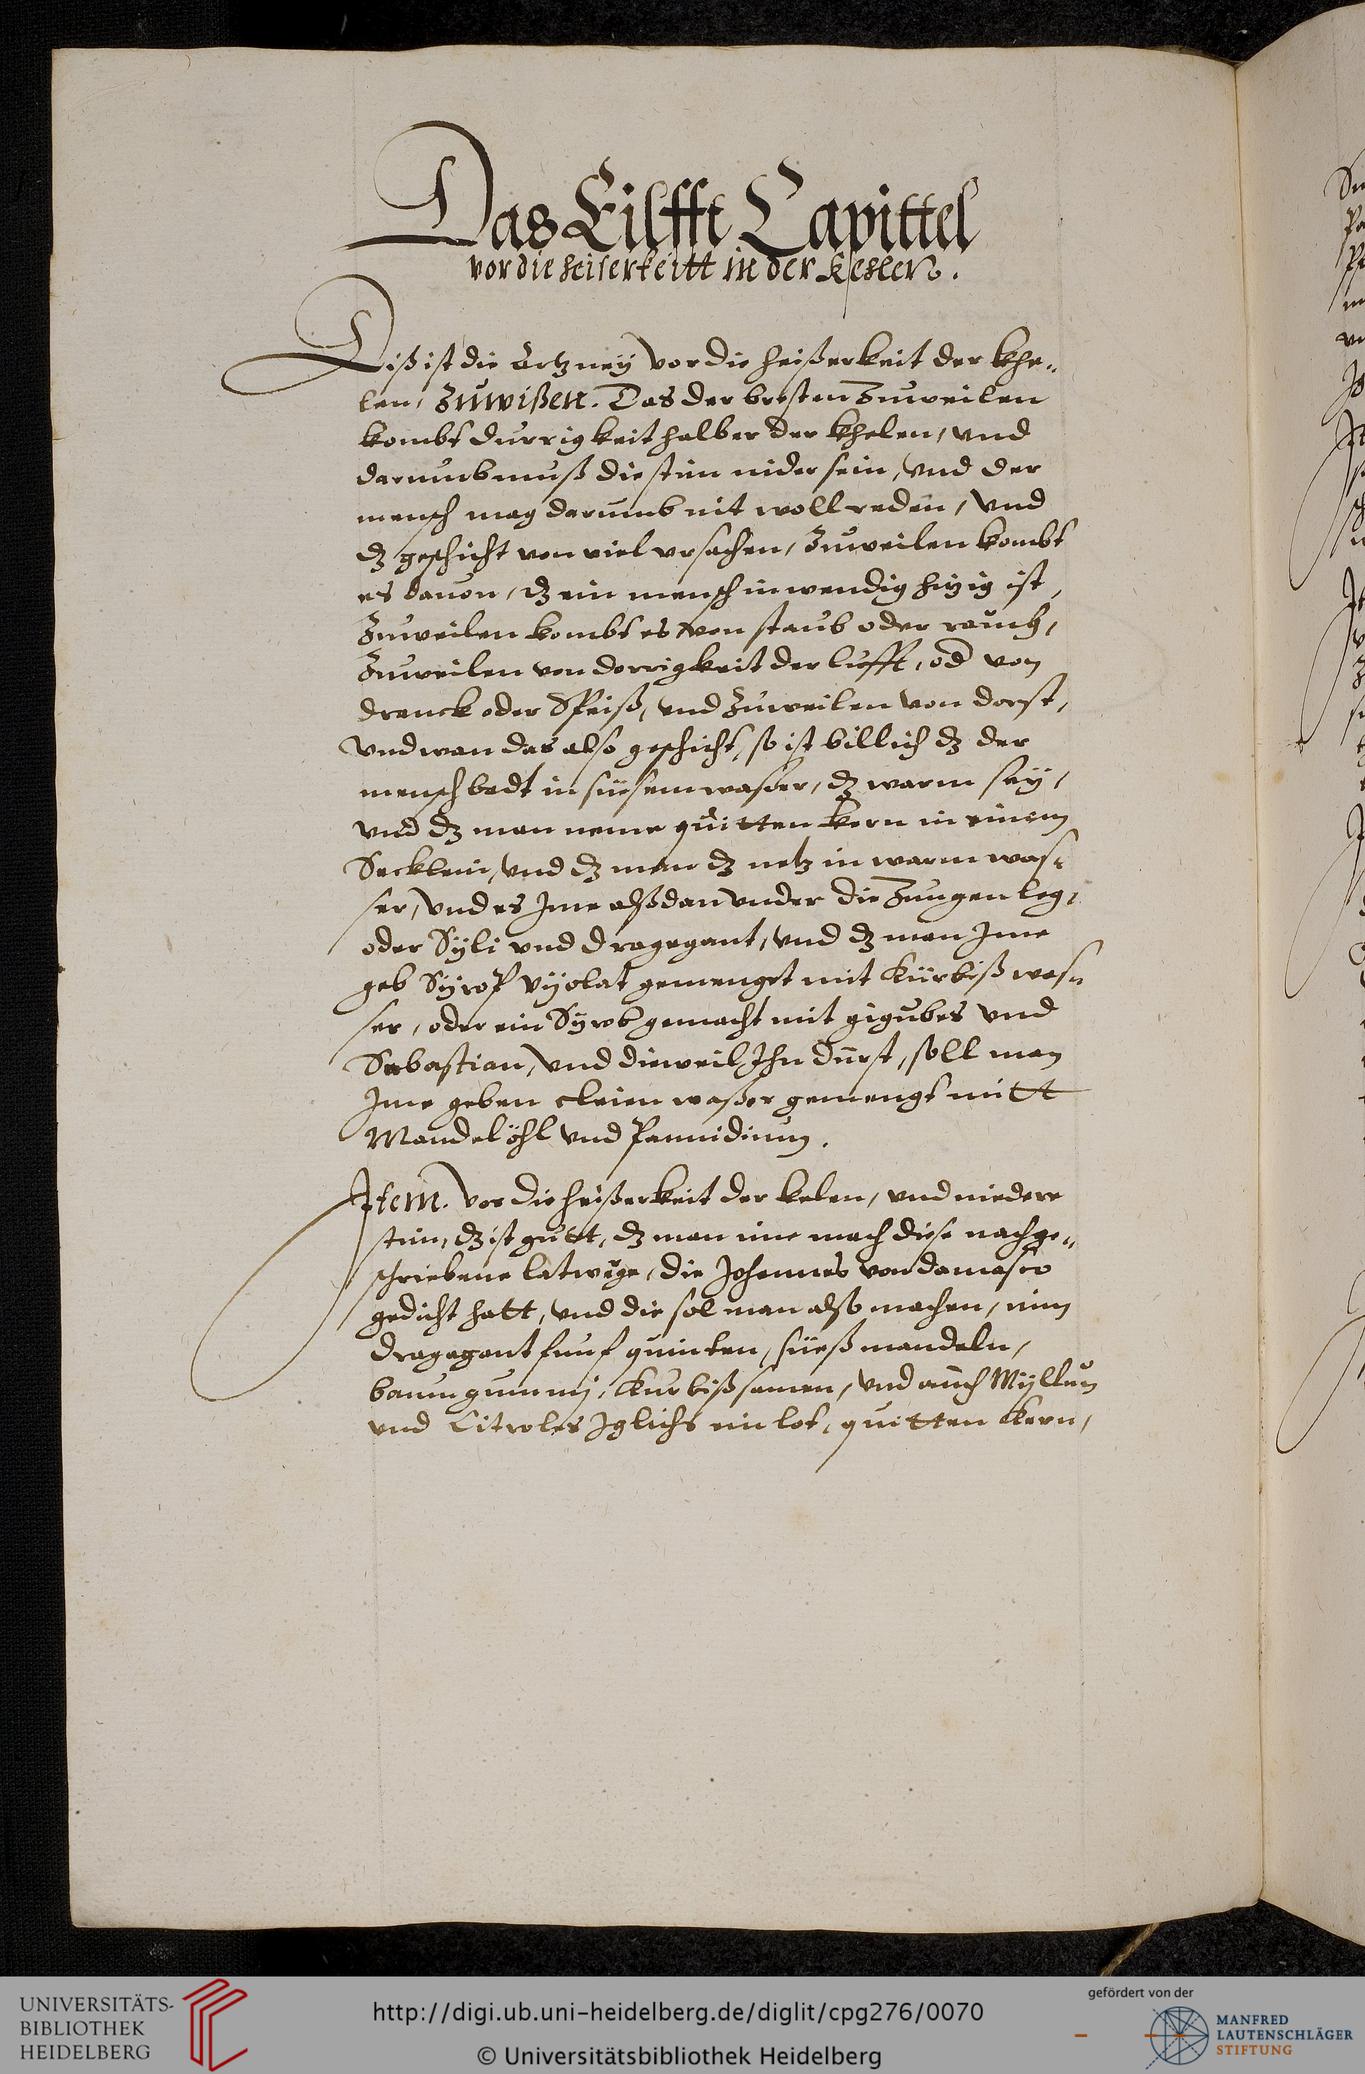 Das Eilfft Capittel
vor die heiserkeitt in der Kehlen.
Diß ist die Artzney vor die heißerkeit der khe-
len, Zuwißen. Das der bresten Zuweilen
kombt durrigkeit halber der khelen, und
darumb muß die stim nider sein, und der
mensch mag darumb nit woll reden, und
dz geschicht von viel ursachen, Zuweilen kombt
es davon, dz ein mensch inwendig hizig ist,
Zuweilen kombt es von staub oder rauch,
Zuweilen von dorrigkeit der lufft, od von
dranck oder Speiß, und Zuweilen von dorst,
und wan das also geschicht, so ist billich dz der
mensch badt in süesem waßer, dz warm seÿ,
und dz man neme quitten kern in einem
Secklein, und dz man dz netz in warm was-
ser, und es Ime alßdan under die Zungen leg,
oder Sÿli und dragagant, und dz man Ime
geb Sÿrop vÿolat gemenget mit Kürbiß was-
ser, oder ein Sÿrob gemacht mit gigubes und
Sebastian, und dieweil Ihn dürst, soll man
Ime geben cleien waßer gemengt mitt
Mandelöhl und Pannidium.
Item. vor die heißerkeit der kelen, und niedere
stim, dz ist gutt, dz man ime mach diese nachge-
schriebene latwege, die Johannes von damasco
gedicht hatt, und die sol man also machen, nim
dragagant funf quinten, süeß mandeln,
baum gummj, Kurbißsamen, und auch Mÿllum
und Citroles Iglichs ein lot, quitten kern,
UNIVERSITÄTS-
BIBLIOTHEK
HEIDELBERG
http://digi.ub.uni-heidelberg.de/diglit/cpg276/0070
© Universitätsbibliothek Heidelberg
gefördert von der
MANFRED
LAUTENSCHLÄGER
STIFTUNG